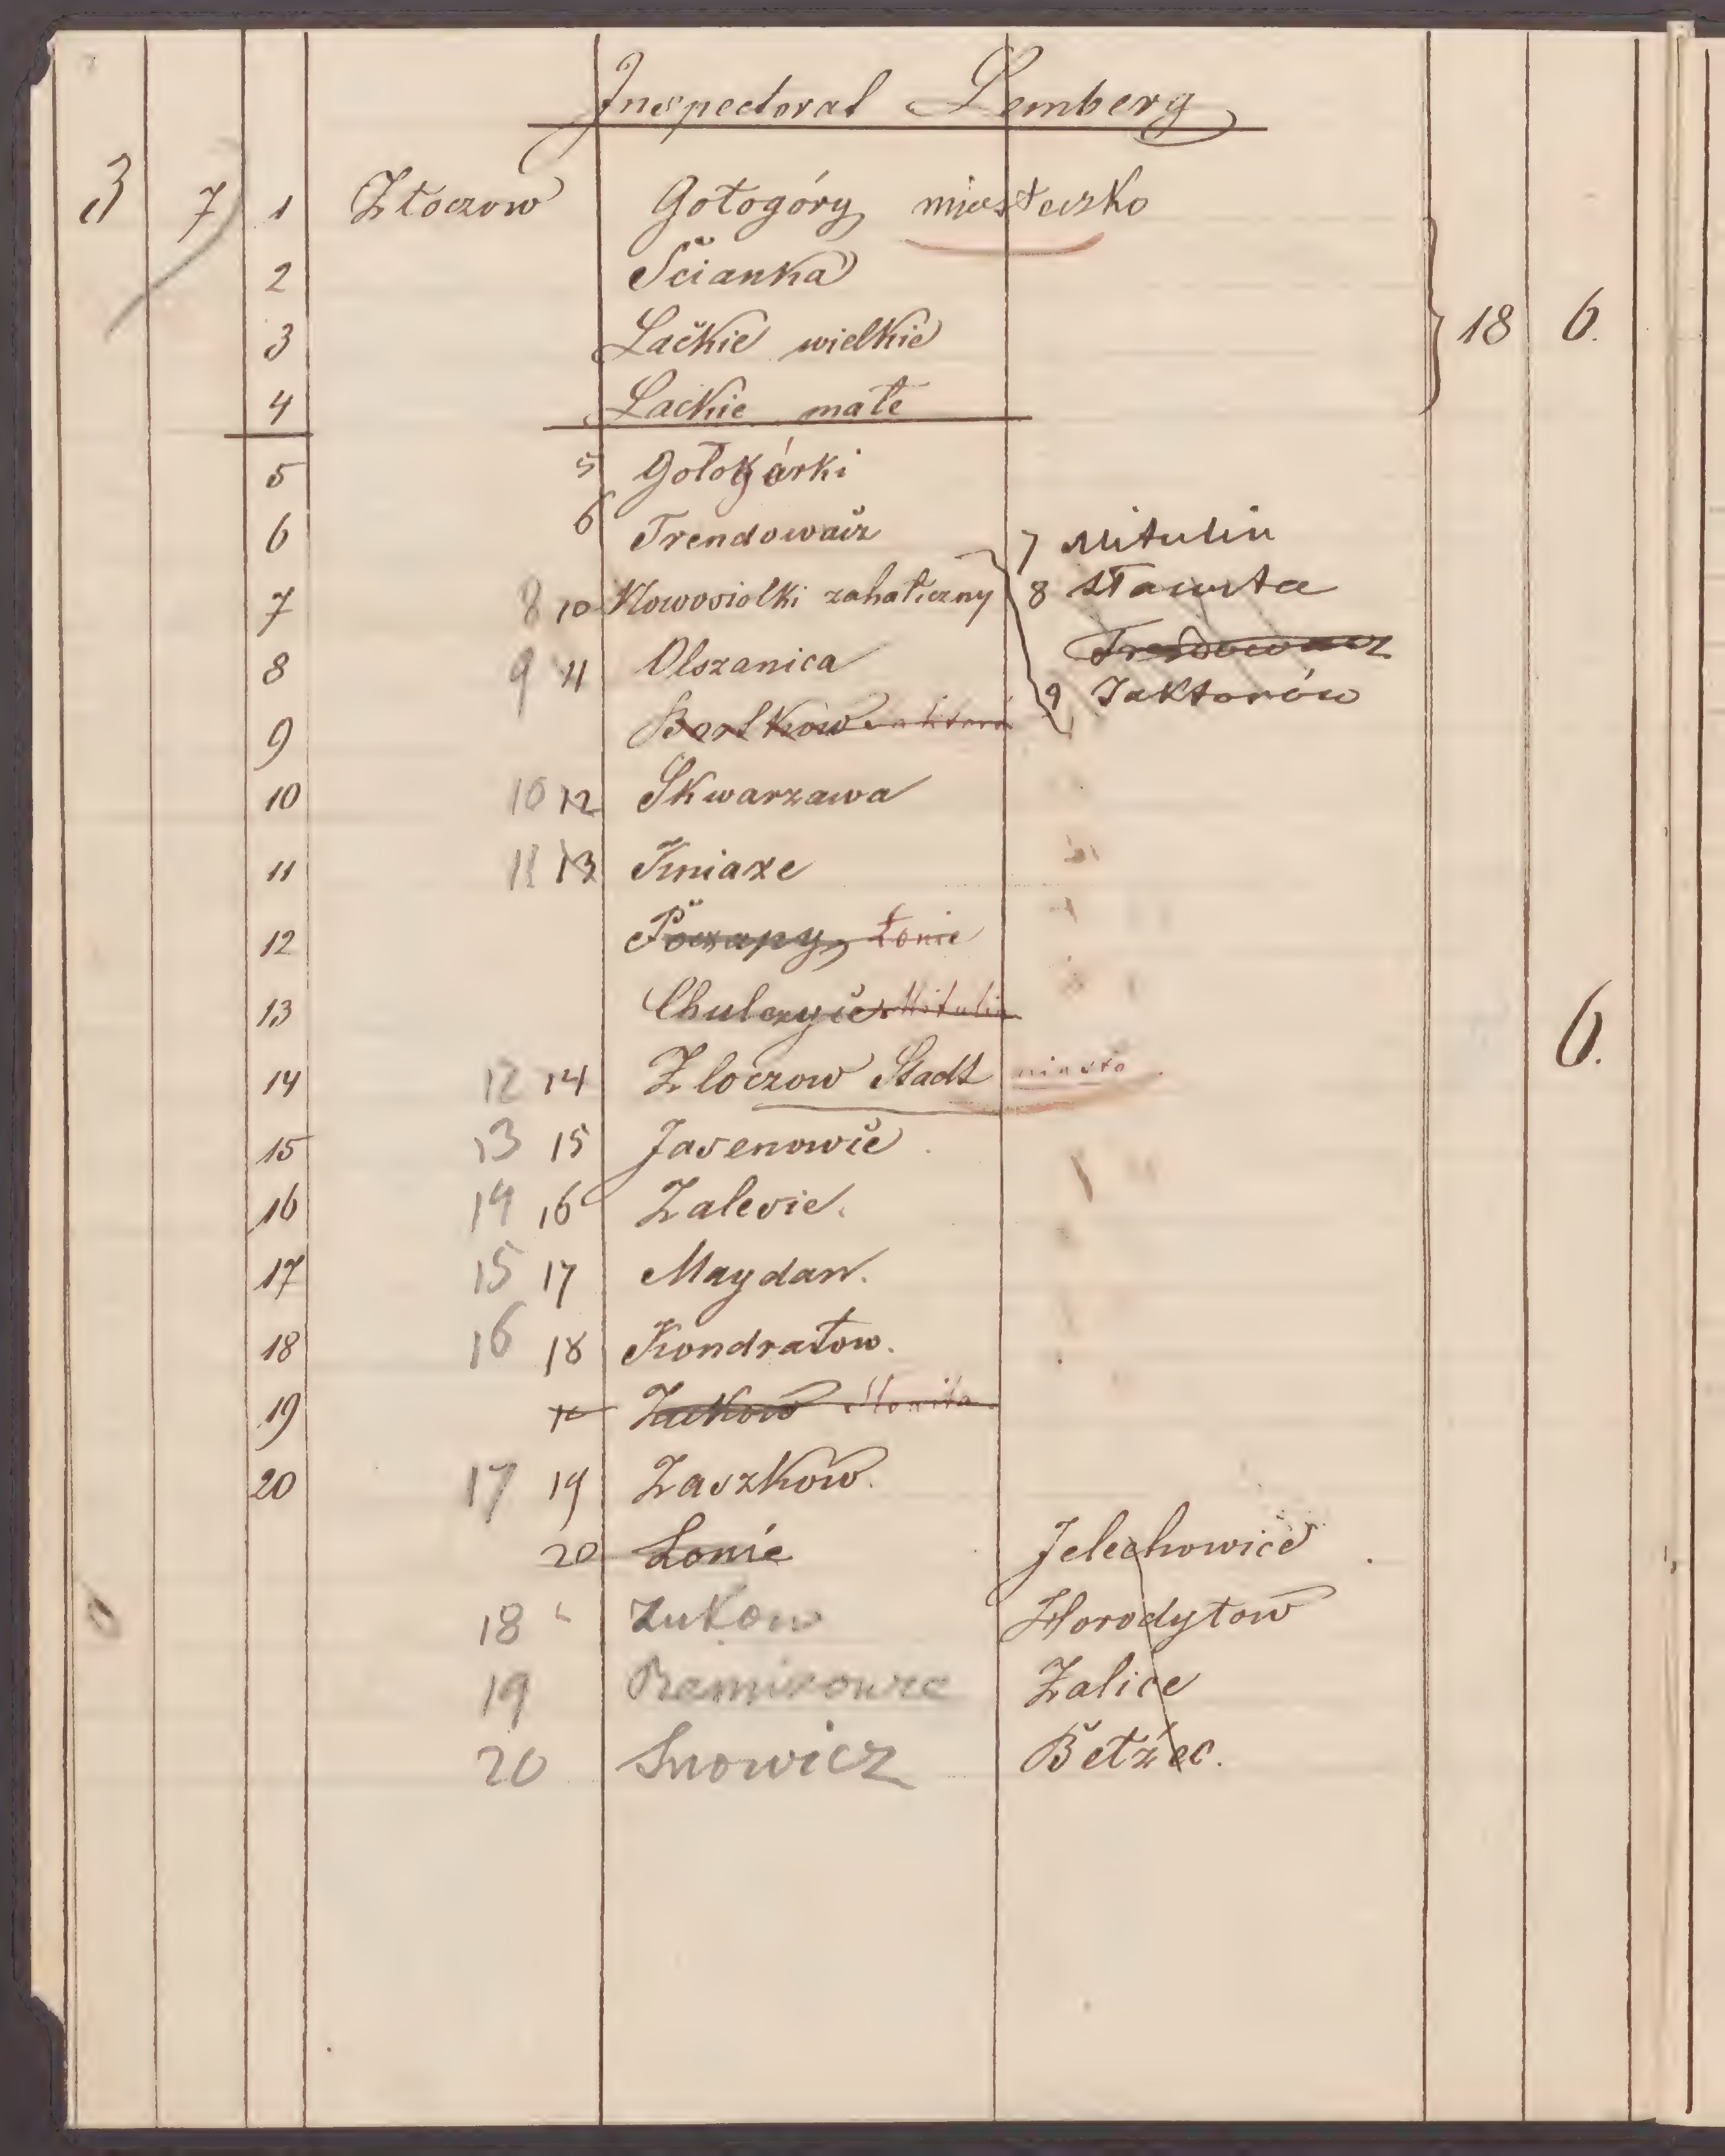 Inspectorat Lemberg
3 7 1 Złoczow Gołogóry miasteczko
2 Šcianka
3 Lačkie wielkie 18 6.
4 Lackie małe
5 5 Gołogórki
6 6 Trendowač 7 Mitulin
7 8 10 Nowosiolki zahałiczny 8 Sławita
Trendowacz
8 9 11 Olszanica 9 Jaktorów
9 Bortków
10 10 12 Skwarzawa
11 11 13 Kniaze
12 Poczapy, Łonie
13 Chulczyče Mitulin 6.
14 12 14 Zloczow Stadt miasto
15 13 15 Jasenowče
16 14 16 Zalesie.
17 15 17 Maydan.
18 16 18 Kondratow.
19 Zukow Slowita
20 17 19 Zaszkow.
20 Lonie Jelechowice
18 Zukow Horodyłow
19 Remizowce Zalice
20 Snowicz Bełzec.